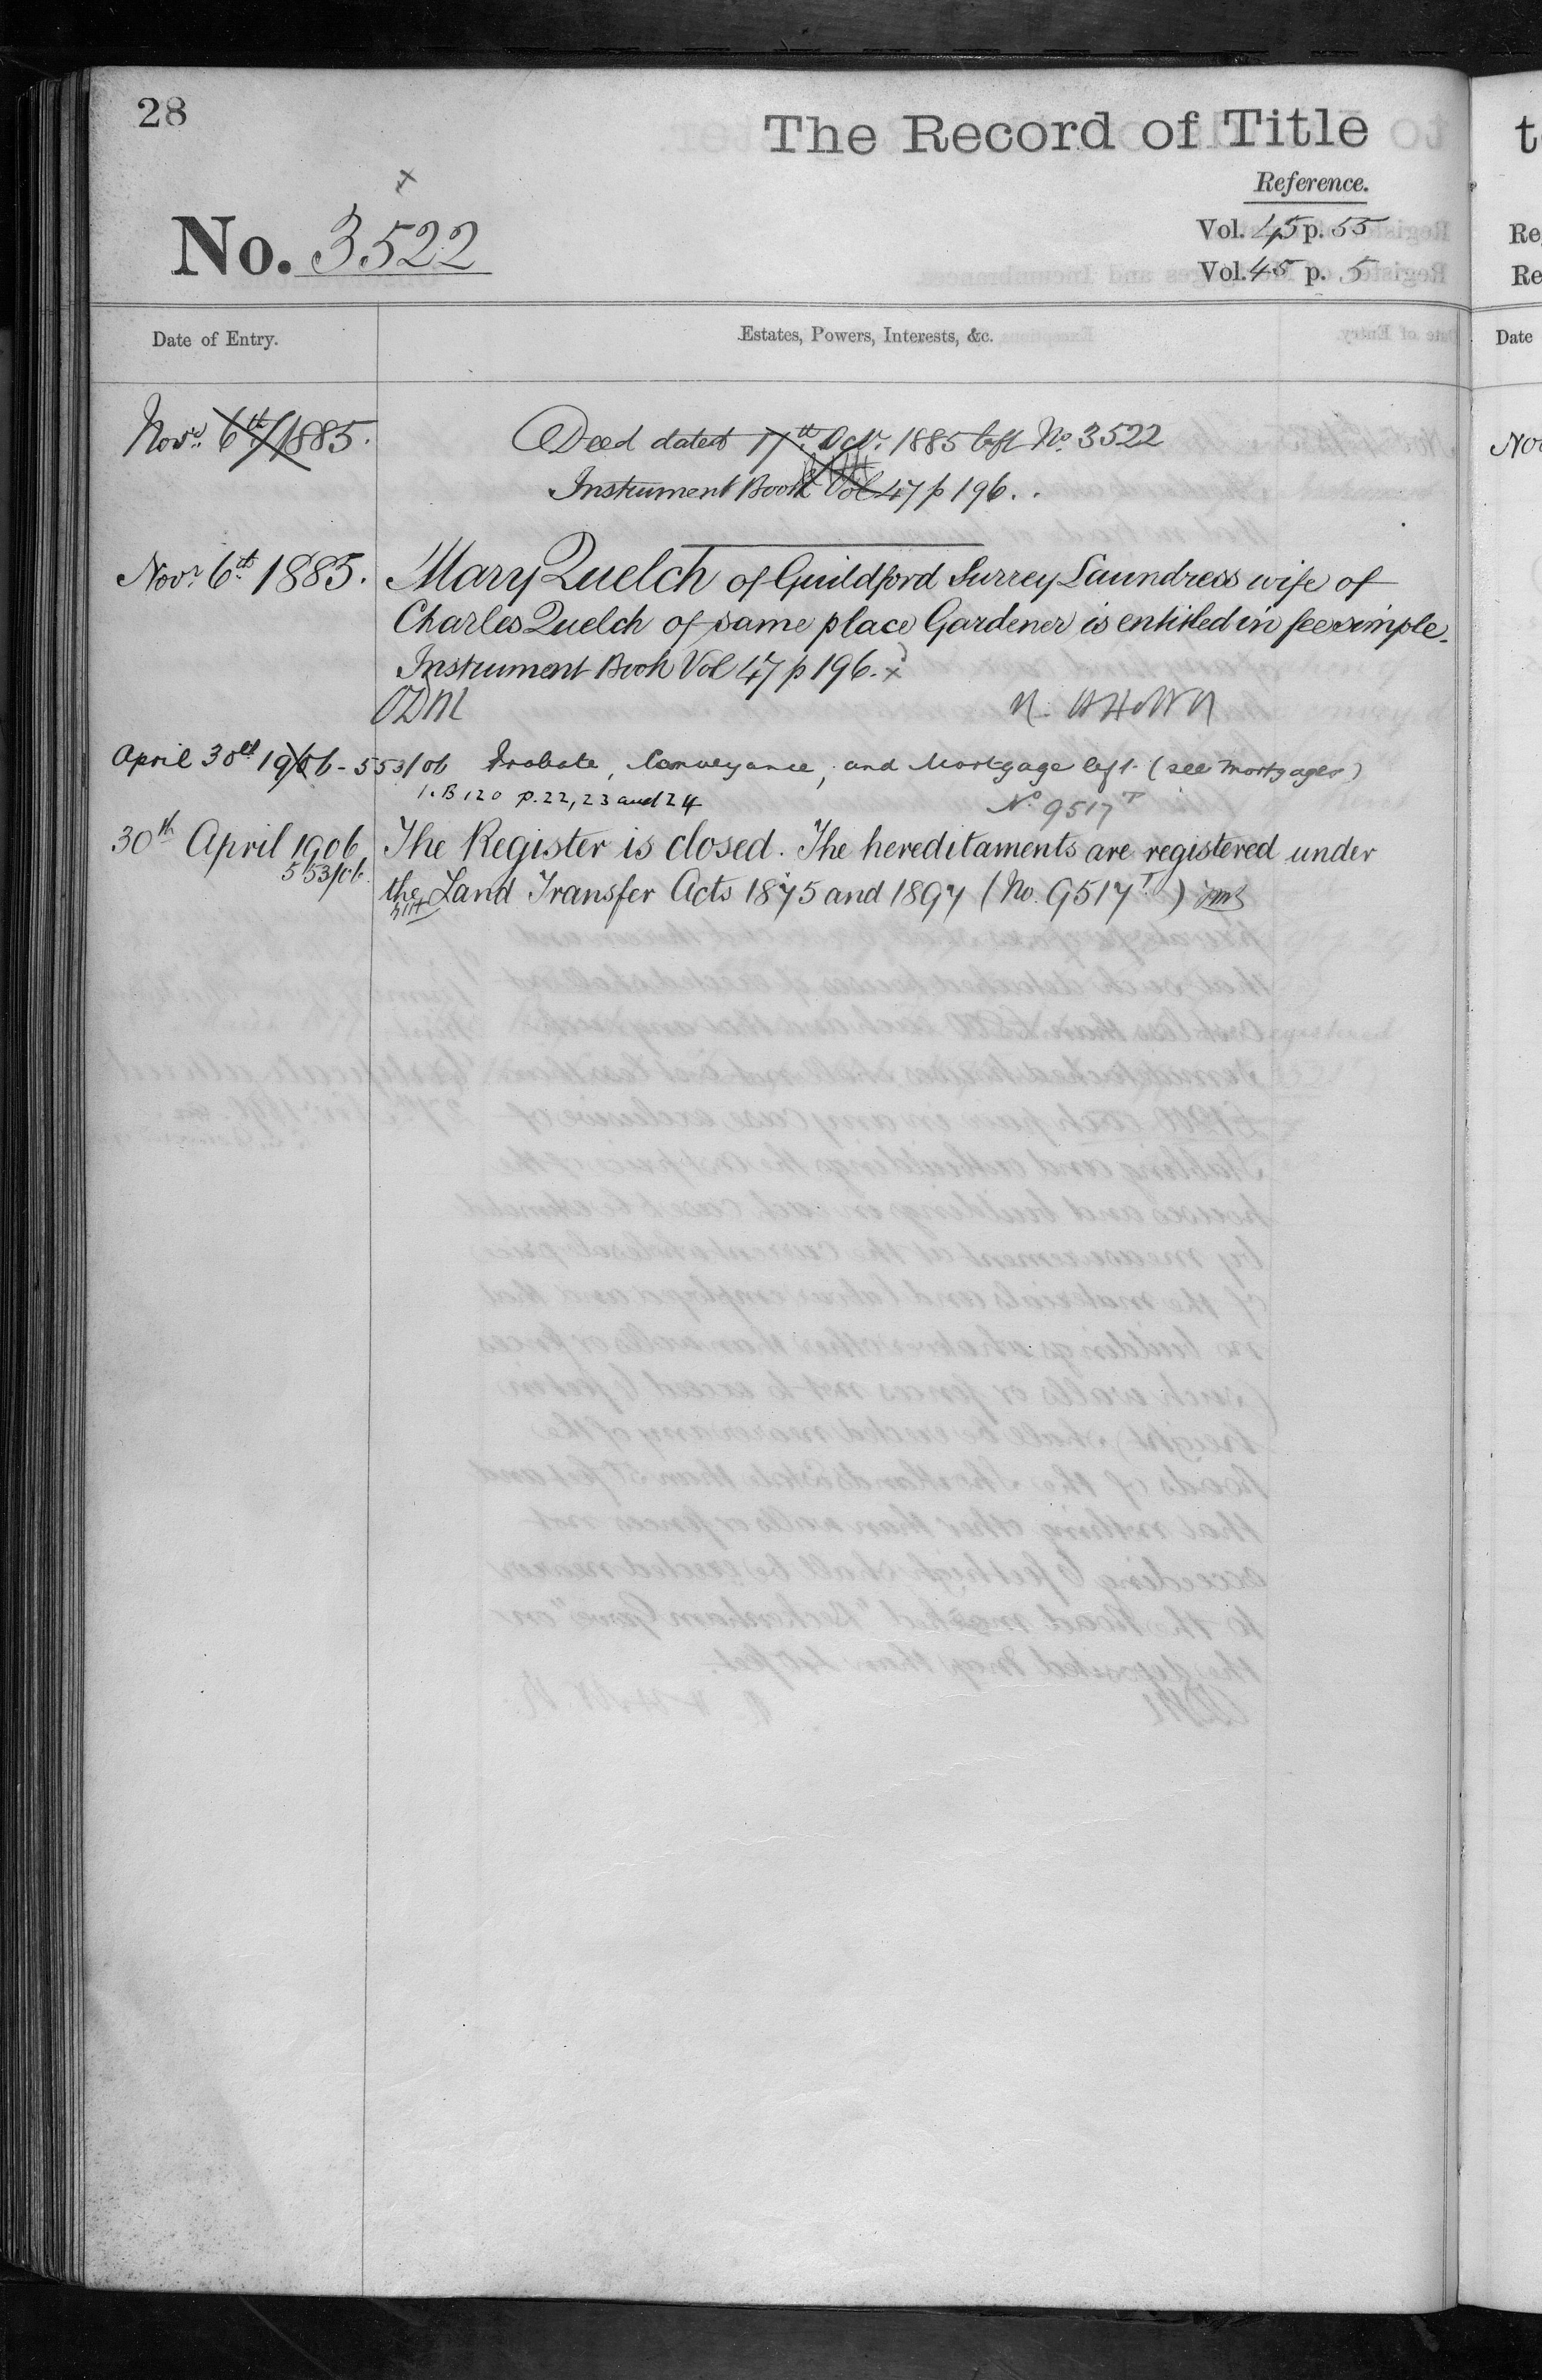 28
The Record of Title
Reference.
No. 3522
Vol. 45 p. 55
Vol. 45 p. 5
Date of Entry.
Estates, Powers, Interests, &c.
Novr. 6th/1885.
Deed dated 17th Octr. 1885 left No. 3522
Instrument Book Vol 47 p 196.
Novr 6th 1885. Mary Quelch of Guildford Surrey Laundress wife of
Charles Quelch of same place Gardener is entitled in fee simple.
Instrument Book Vol 47 p 196.
April 30th 1906 - 553/06 Probate, Conveyance, and Mortgage left. (see Mortgages)
I.B 120 p. 22, 23 and 24 No 9517T
30th April 1906 The Register is closed. The hereditaments are registered under
553/06. the Land Transfer Acts 1875 and 1897 (No. 9517T)
t
Re
Re
Date
Nov